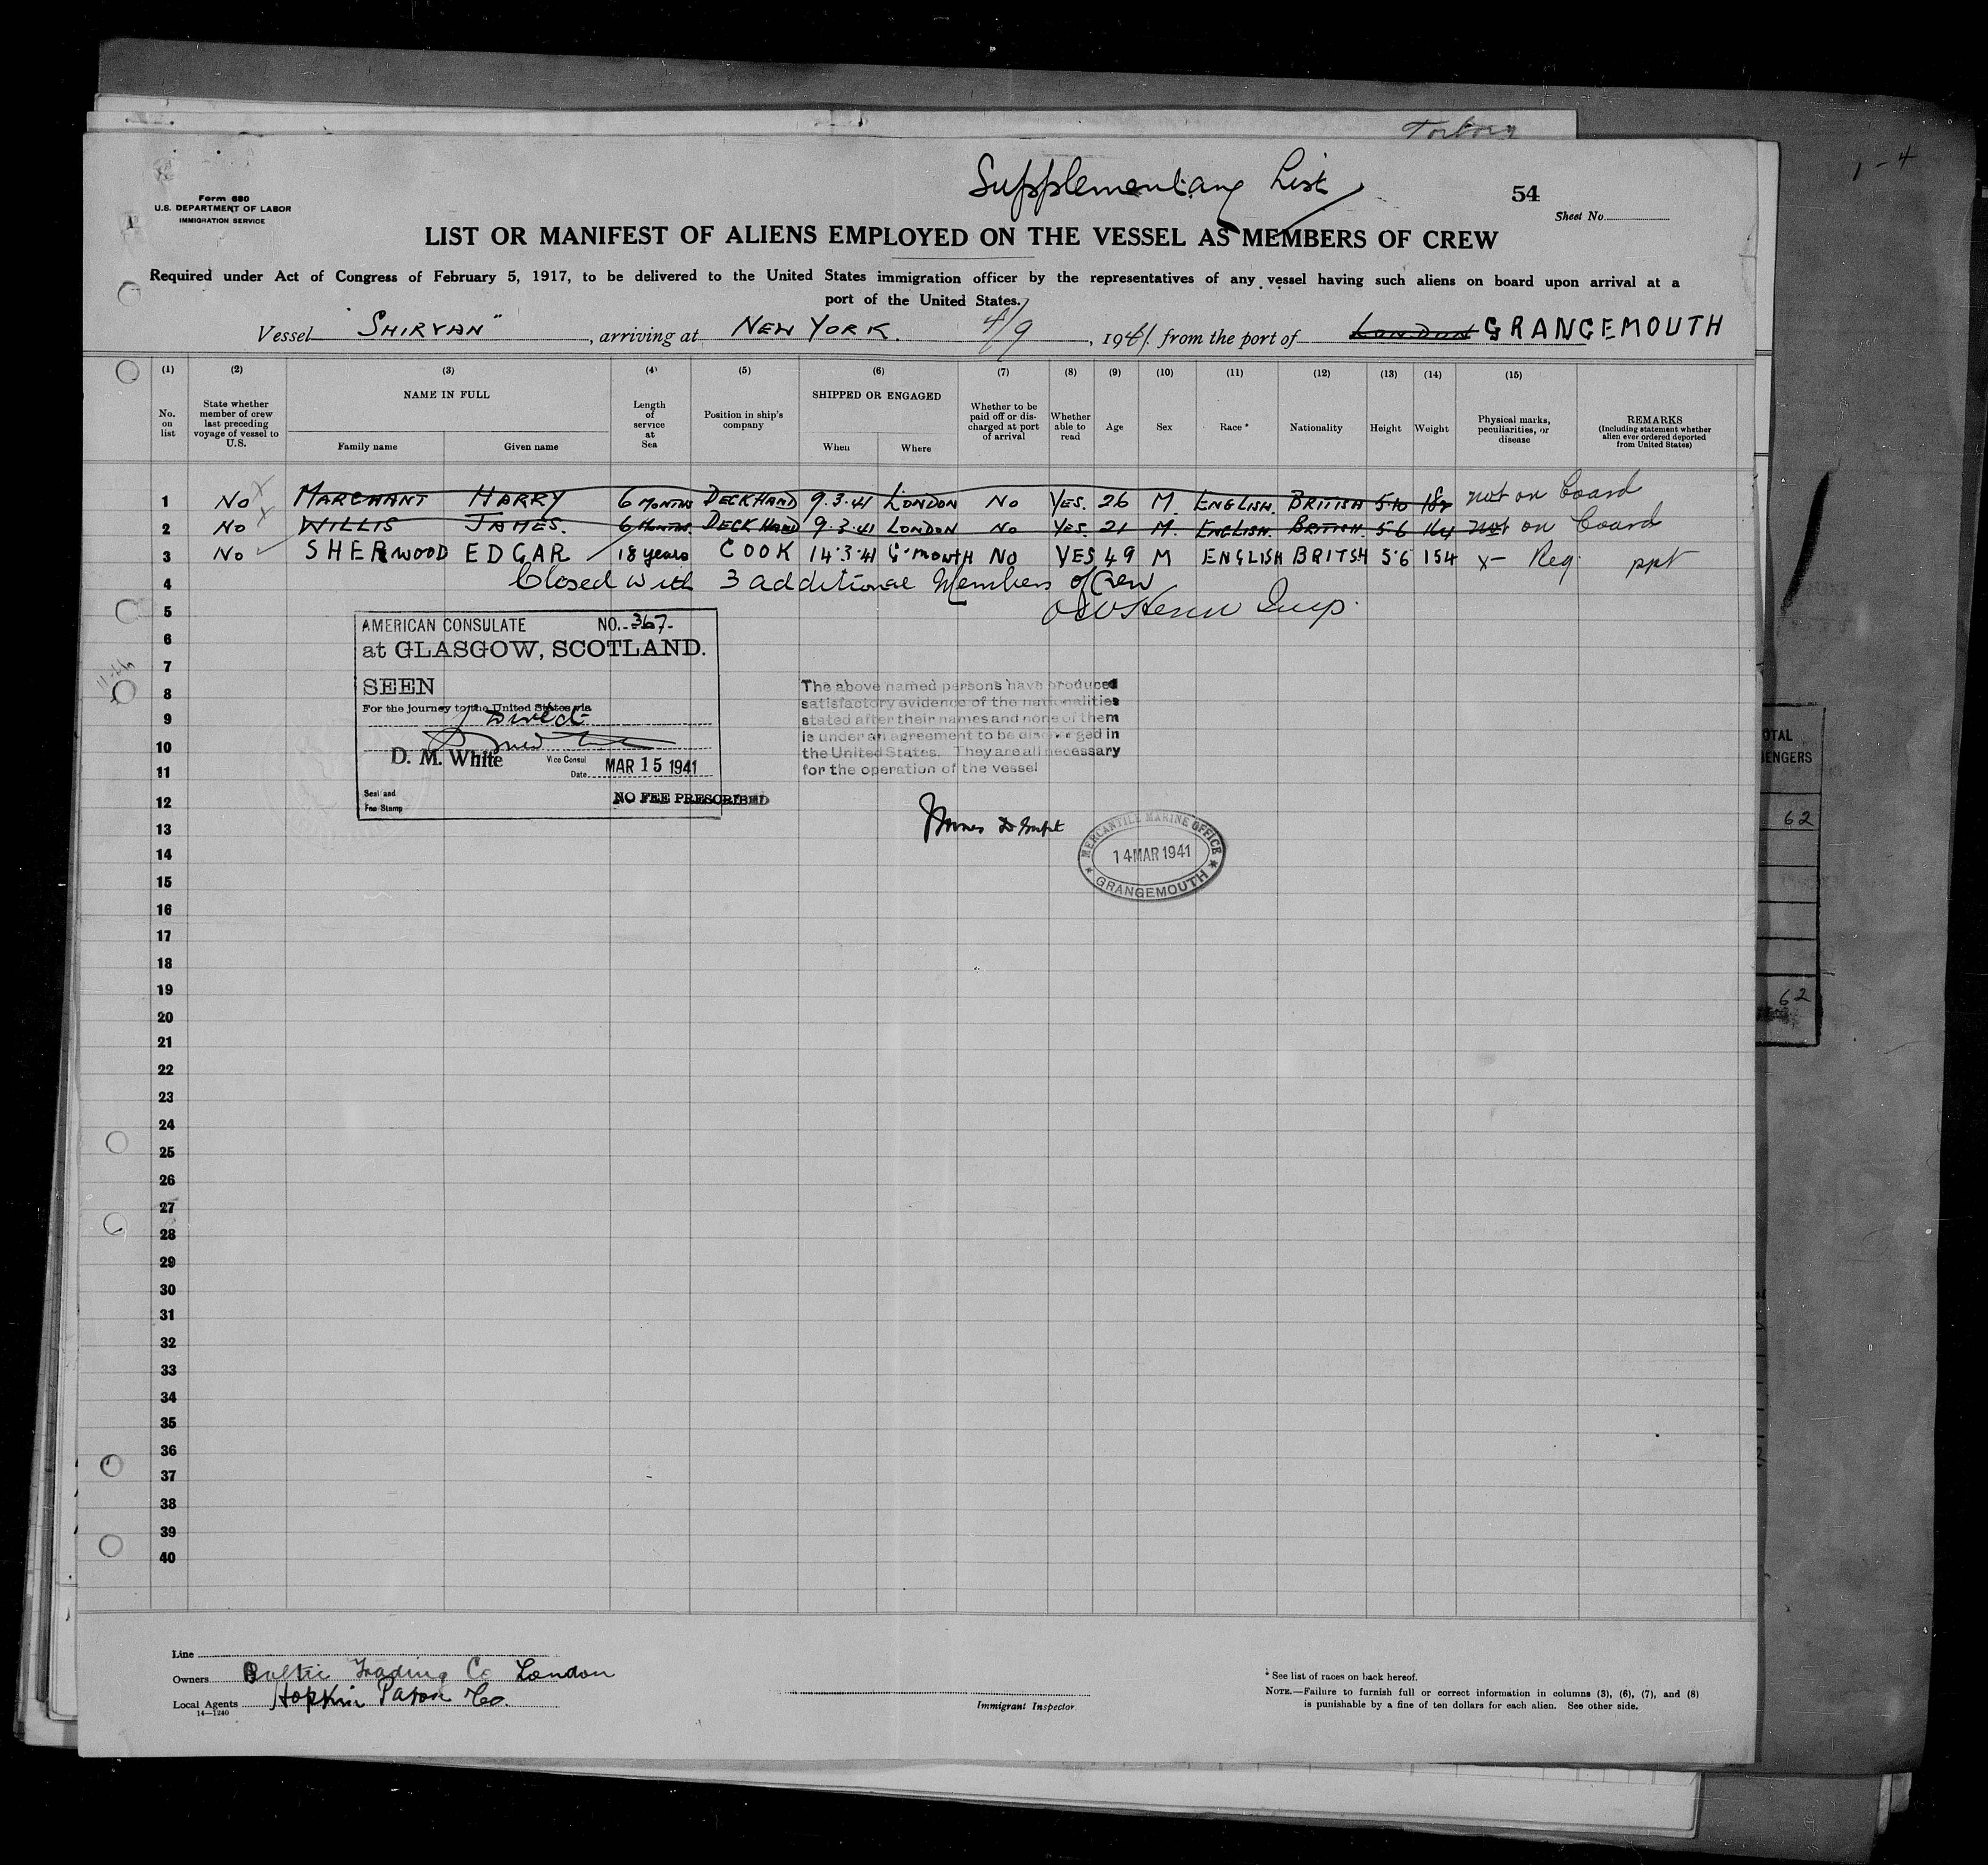 Supplementary List
54
Form 680
U.S. DEPARTMENT OF LABOR
IMMIGRATION SERVICE
Sheet No.
LIST OR MANIFEST OF ALIENS EMPLOYED ON THE VESSEL AS MEMBERS OF CREW
Required under Act of Congress of February 5, 1917, to be delivered to the United States immigration officer by the representatives of any vessel having such aliens on board upon arrival at a
port of the United States.
Vessel "SHIRVAN", arriving at NEW YORK. 4/9, 1941 from the port of LONDON GRANGEMOUTH
(1) (2) (3) (4) (5) (6) (7) (8) (9) (10) (11) (12) (13) (14) (15)
No. on list
State whether member of crew last preceding voyage of vessel to U.S.
NAME IN FULL
Family name
Given name
Length of service at Sea
Position in ship's company
SHIPPED OR ENGAGED
When
Where
Whether to be paid off or discharged at port of arrival
Whether able to read
Age
Sex
Race *
Nationality
Height
Weight
Physical marks, peculiarities, or disease
REMARKS
(Including statement whether alien ever ordered deported from United States)
1 No x MARCHANT HARRY 6 MONTHS DECKHAND 9.3.41 LONDON No YES. 26 M. ENGLISH. BRITISH 5-10 182 not on board
2 No x WILLIS JAMES. 6 MONTHS. DECK HAND 9.3.41 LONDON No YES. 21 M. ENGLISH. BRITISH. 5-6 164 not on board
3 No SHERWOOD EDGAR 18 years COOK 14.3.41 G'MOUTH NO YES 49 M ENGLISH BRITSH 5'6 154 x- Reg. ppt
4 Closed with 3 additional Members of Crew
5
6
7
8
9
10
11
12
13
14
15
16
17
18
19
20
21
22
23
24
25
26
27
28
29
30
31
32
33
34
35
36
37
38
39
40
AMERICAN CONSULATE NO. 367
at GLASGOW, SCOTLAND.
SEEN
For the journey to the United States via
Direct
D. M. White Vice Consul
Date MAR 15 1941
Seal and
Fee Stamp
NO FEE PRESCRIBED
The above named persons have produced
satisfactory evidence of the nationalities
stated after their names and none of them
is under an agreement to be discharged in
the United States. They are all necessary
for the operation of the vessel
MERCANTILE MARINE OFFICE
14 MAR 1941
GRANGEMOUTH
OTAL
ENGERS
62
62
1-4
Line
Owners Baltic Trading Co London
Local Agents Hopkin Paton & Co.
14—1240
Immigrant Inspector
* See list of races on back hereof.
NOTE.—Failure to furnish full or correct information in columns (3), (6), (7), and (8)
is punishable by a fine of ten dollars for each alien. See other side.